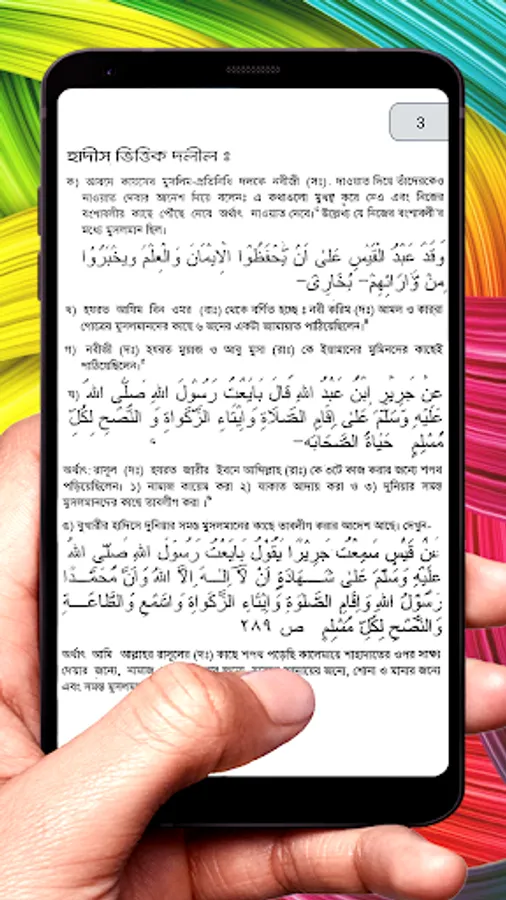 3
হাদীস ভিত্তিক দলীল ঃ
ক) আবদে কায়েসের মুসলিম-প্রতিনিধি দলকে নবীজী (সঃ). দাওয়াত দিয়ে তাঁদেরকেও
দাওয়াত দেবার আদেশ দিয়ে বলেনঃ এ কথাগুলো মুখস্থ করে নেও এবং নিজের
বংশাবলীর কাছে পৌঁছে দেবে অর্থাৎ দাওয়াত দেবে। উল্লেখ্য যে নিজের বংশাবলী'র
মধ্যে মুসলমান ছিল।
وَفَدَ عَبْدُ الْقَيْسِ عَلٰى اَنْ يَّحْفَظُوْا الْاِيْمَانَ وَالْعِلْمَ وَيُخْبِرُوْا
مِنْ وَّرَائِهِمْ- بُخَارِىْ-
খ) হযরত আসিম বিন ওমর (রাঃ) থেকে বর্ণিত হচ্ছে ঃ নবী করিম (দঃ) আমল ও কার্রা
গোত্রের মুসলমানদের কাছে ৬ জনের একটা জামায়াত পাঠিয়েছিলেন।
গ) নবীজী (দঃ) হযরত মুয়াজ ও আবু মুসা (রাঃ) কে ইয়ামানের মুমিনদের কাছেই
পাঠিয়েছিলেন।
ঘ) عَنْ جَرِيْرِ اِبْنِ عَبْدُ اللهِ قَالَ بَايَعْتُ رَسُوْلَ اللهِ صَلَّى اللهُ
عَلَيْهِ وَسَلَّمَ عَلٰى اِقَامِ الصَّلَاةِ وَاِيْتَاءِ الزَّكٰوةِ وَ النُّصْحِ لِكُلِّ
مُسْلِمٍ حَيَاةُ الصَّحَابَه-
অর্থাৎ রাসূল (দঃ) হযরত জারীর ইবনে আব্দিল্লাহ (রাঃ) কে ৩টে কাজ করার জন্যে শপথ
পড়িয়েছিলেন। ১) নামাজ কায়েম করা ২) যাকাত আদায় করা ও ৩) দুনিয়ার সমস্ত
মুসলমানদের কাছে তাবলীগ করা।
ঙ) বুখারীর হাদিসে দুনিয়ার সমস্ত মুসলমানের কাছে তাবলীগ করার আদেশ আছে। দেখুন-
عَنْ قَيْسٍ سَمِعْتُ جَرِيْرًا يَقُوْلُ بَايَعْتُ رَسُوْلَ اللهِ صَلَّى اللهُ
عَلَيْهِ وَسَلَّمَ عَلٰى شَهَادَةِ اَنْ لَآ اِلٰهَ اِلاَّ اللهُ وَاَنَّ مُحَمَّدًا
رَسُوْلُ اللهِ وَاِقَامِ الصَّلٰوةِ وَاِيْتَاءِ الزَّكٰوةِ وَاسْمَعِ وَالطَّاعَةِ
وَالنُّصْحِ لِكُلِّ مُسْلِمٍ ص ٢٨٩
অর্থাৎ আমি আল্লাহর রাসূলের (দঃ) কাছে শপথ পড়েছি কালেমায়ে শাহাদাতের ওপর সাক্ষ্য
দেয়ার জন্যে, নামাজ আদায়ের জন্যে, শোনা ও মানার জন্যে
এবং সমস্ত